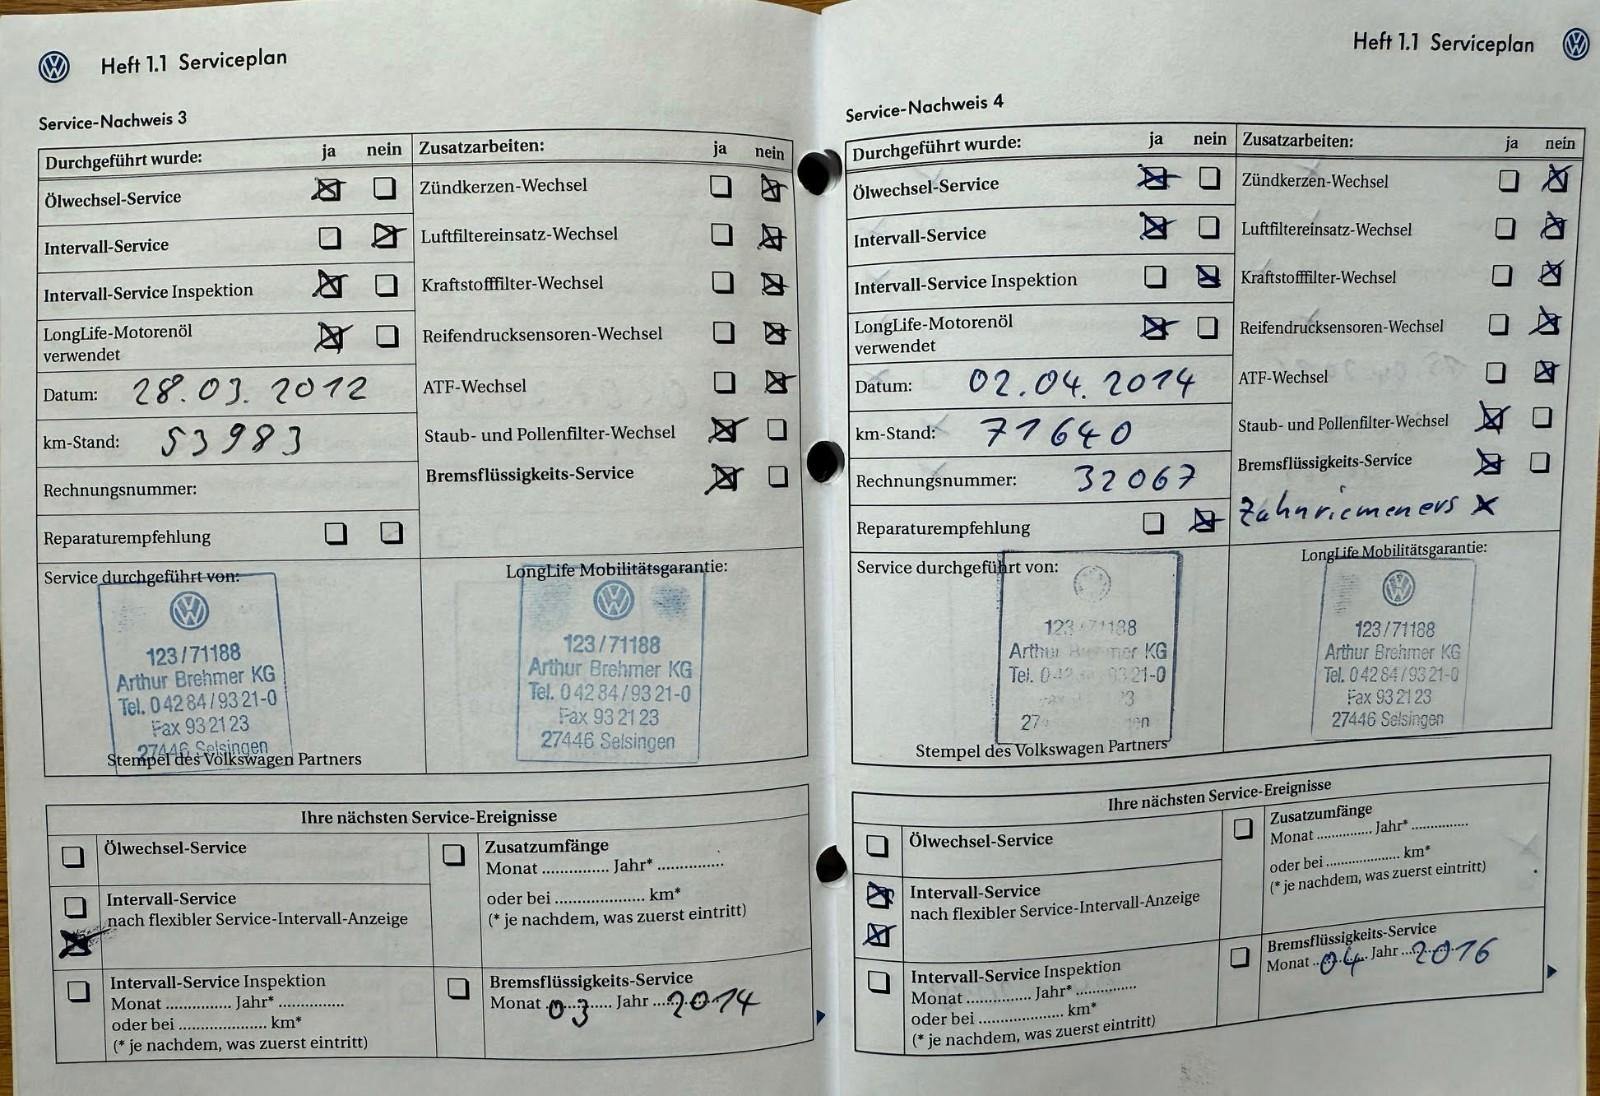 Heft 1.1 Serviceplan
Service-Nachweis 3
Durchgeführt wurde: ja nein
Ölwechsel-Service
Intervall-Service
Intervall-Service Inspektion
LongLife-Motorenöl
verwendet
Datum: 28.03.2012
km-Stand: 53983
Rechnungsnummer:
Reparaturempfehlung
Zusatzarbeiten: ja nein
Zündkerzen-Wechsel
Luftfiltereinsatz-Wechsel
Kraftstofffilter-Wechsel
Reifendrucksensoren-Wechsel
ATF-Wechsel
Staub- und Pollenfilter-Wechsel
Bremsflüssigkeits-Service
Service durchgeführt von:
123/71188
Arthur Brehmer KG
Tel. 0 42 84 / 93 21-0
Fax 93 21 23
27446 Selsingen
Stempel des Volkswagen Partners
LongLife Mobilitätsgarantie:
123/71188
Arthur Brehmer KG
Tel. 0 42 84 / 93 21-0
Fax 93 21 23
27446 Selsingen
Ihre nächsten Service-Ereignisse
Ölwechsel-Service
Intervall-Service
nach flexibler Service-Intervall-Anzeige
Intervall-Service Inspektion
Monat ............ Jahr* ............
oder bei ................ km*
(* je nachdem, was zuerst eintritt)
Zusatzumfänge
Monat ............ Jahr* ............
oder bei ................ km*
(* je nachdem, was zuerst eintritt)
Bremsflüssigkeits-Service
Monat 03 Jahr 2014
Heft 1.1 Serviceplan
Service-Nachweis 4
Durchgeführt wurde: ja nein
Ölwechsel-Service
Intervall-Service
Intervall-Service Inspektion
LongLife-Motorenöl
verwendet
Datum: 02.04.2014
km-Stand: 71640
Rechnungsnummer: 32067
Reparaturempfehlung
Zusatzarbeiten: ja nein
Zündkerzen-Wechsel
Luftfiltereinsatz-Wechsel
Kraftstofffilter-Wechsel
Reifendrucksensoren-Wechsel
ATF-Wechsel
Staub- und Pollenfilter-Wechsel
Bremsflüssigkeits-Service
Zahnriemen ers x
Service durchgeführt von:
Arthur KG
Stempel des Volkswagen Partners
LongLife Mobilitätsgarantie:
123/71188
Arthur Brehmer KG
Tel. 0 42 84 / 93 21-0
Fax 93 21 23
27446 Selsingen
Ihre nächsten Service-Ereignisse
Ölwechsel-Service
Intervall-Service
nach flexibler Service-Intervall-Anzeige
Intervall-Service Inspektion
Monat ............ Jahr* ............
oder bei ................ km*
(* je nachdem, was zuerst eintritt)
Zusatzumfänge
Monat ............ Jahr* ............
oder bei ................ km*
(* je nachdem, was zuerst eintritt)
Bremsflüssigkeits-Service
Monat 04 Jahr 2016